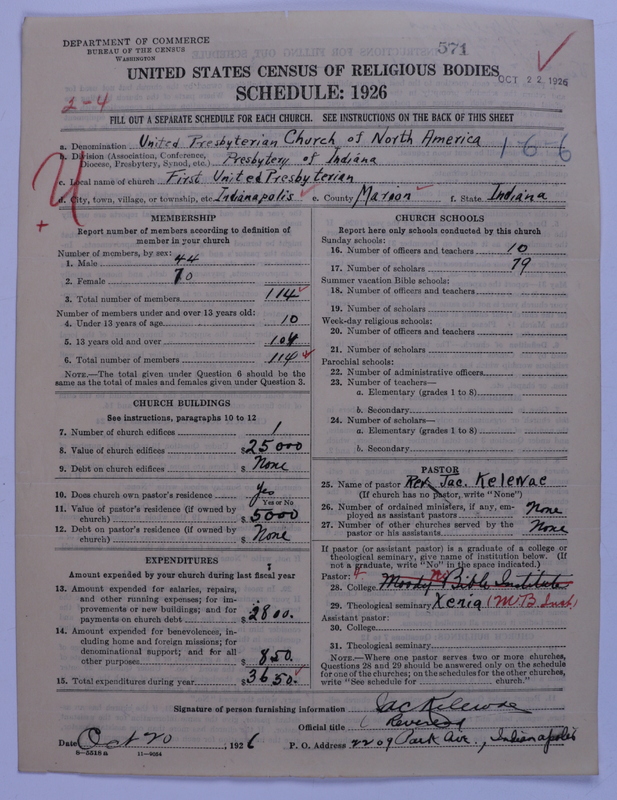 DEPARTMENT OF COMMERCE
BUREAU OF THE CENSUS
WASHINGTON
571
UNITED STATES CENSUS OF RELIGIOUS BODIES
OCT 22 1926
SCHEDULE: 1926
2-4
FILL OUT A SEPARATE SCHEDULE FOR EACH CHURCH. SEE INSTRUCTIONS ON THE BACK OF THIS SHEET
a. Denomination United Presbyterian Church of North America
166
b. Division (Association, Conference, Diocese, Presbytery, Synod, etc.) Presbytery of Indiana
c. Local name of church First United Presbyterian
d. City, town, village, or township, etc. Indianapolis e. County Marion f. State Indiana
MEMBERSHIP
Report number of members according to definition of
member in your church
Number of members, by sex:
1. Male 44
2. Female 70
3. Total number of members 114
Number of members under and over 13 years old:
4. Under 13 years of age 10
5. 13 years old and over 104
6. Total number of members 114
NOTE.—The total given under Question 6 should be the
same as the total of males and females given under Question 3.
CHURCH BUILDINGS
See instructions, paragraphs 10 to 12
7. Number of church edifices 1
8. Value of church edifices $25000
9. Debt on church edifices $None
10. Does church own pastor's residence Yes
Yes or No
11. Value of pastor's residence (if owned by
church) $5000
12. Debt on pastor's residence (if owned by
church) $None
EXPENDITURES
Amount expended by your church during last fiscal year
13. Amount expended for salaries, repairs,
and other running expenses; for im-
provements or new buildings; and for
payments on church debt $2800.
14. Amount expended for benevolences, in-
cluding home and foreign missions; for
denominational support; and for all
other purposes $850.
15. Total expenditures during year $3650.
CHURCH SCHOOLS
Report here only schools conducted by this church
Sunday schools:
16. Number of officers and teachers 10
17. Number of scholars 79
Summer vacation Bible schools:
18. Number of officers and teachers
19. Number of scholars
Week-day religious schools:
20. Number of officers and teachers
21. Number of scholars
Parochial schools:
22. Number of administrative officers
23. Number of teachers—
a. Elementary (grades 1 to 8)
b. Secondary
24. Number of scholars—
a. Elementary (grades 1 to 8)
b. Secondary
PASTOR
25. Name of pastor Rev. Jac. Kelewae
(If church has no pastor, write "None")
26. Number of ordained ministers, if any, em-
ployed as assistant pastors None
27. Number of other churches served by the
pastor or his assistants None
If pastor (or assistant pastor) is a graduate of a college or
theological seminary, give name of institution below. (If
not a graduate, write "No" in the space indicated.)
Pastor:
28. College Moody Bible Institute
29. Theological seminary Xenia (M. B. Inst)
Assistant pastor:
30. College
31. Theological seminary
NOTE.—Where one pastor serves two or more churches,
Questions 28 and 29 should be answered only on the schedule
for one of the churches; on the schedules for the other churches,
write "See schedule for church."
Signature of person furnishing information Jac Kelewae
Official title Reverend
Date Oct 20, 1926 P. O. Address 2209 Park Ave., Indianapolis
8-5518a 11-9064